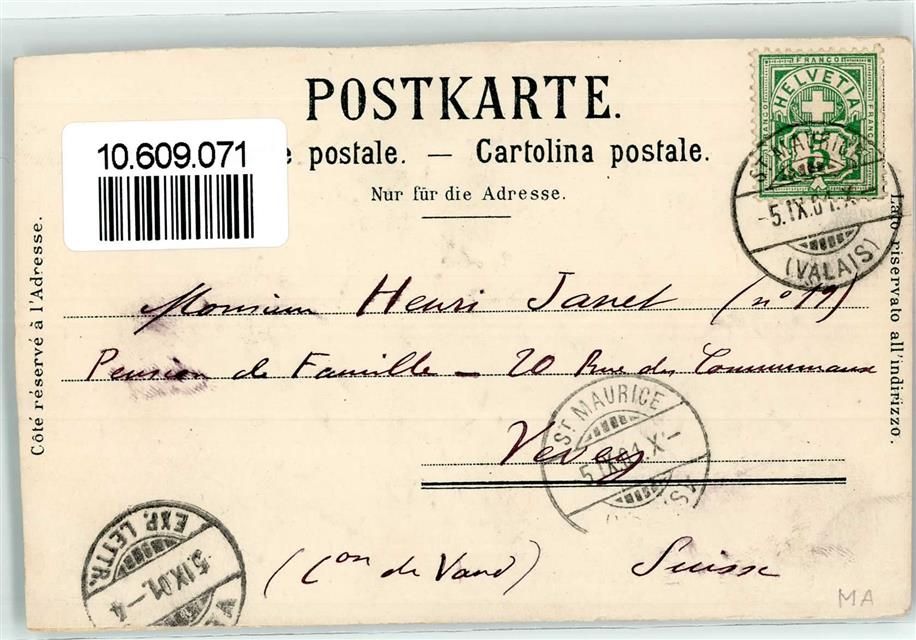 POSTKARTE.
10.609.071
e postale. — Cartolina postale.
Nur für die Adresse.
FRANCO
FRANCO
FRANCO
HELVETIA
5
ST MAURICE
-5.IX.01.X-
(VALAIS)
Côté réservé à l'Adresse.
Lato riservato all'indirizzo.
Monsieur Henri Janet (no 19)
Pension de Famille — 20 Rue des Communaux
Vevey
ST MAURICE
5.IX.01.X-
EXP. LETTR.
5.IX.01.-4
(Con de Vaud) Suisse
MA